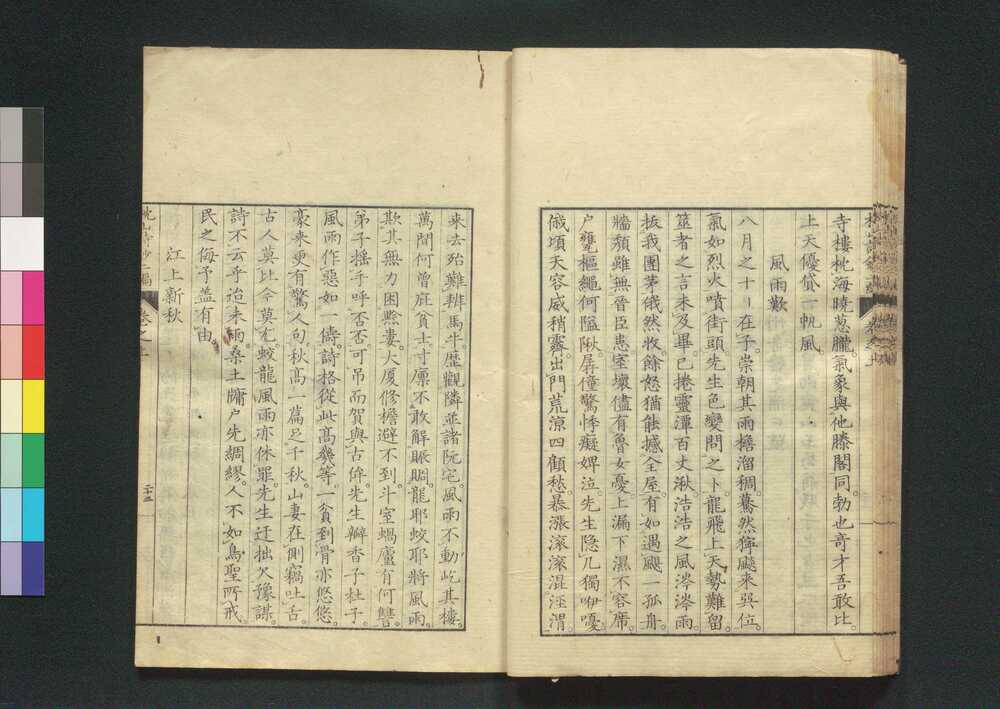 寺樓枕海曉蔥朧。氣象與他滕閣同。勃也奇才吾敢比。
上天優貸一帆風。
風雨歎
八月之十日在子。崇朝其雨檐溜稠。驀然獰飈來巽位。
氣如烈火噴街頭。先生色變問之卜。龍飛上天勢難留。
筮者之言未及畢。已捲靈潭百丈湫。浩浩之風涔涔雨。
拔我團茅俄然收。餘怒猶能撼全屋。有如遇颶一孤舟。
牆頹雖無晉臣患。室壞儘有魯女憂。上漏下濕不容席。
戶甕樞繩何隘陬。孱僮驚悸癡婢泣。先生隱几獨咿嚘。
俄頃天容威稍霽。出門荒涼四顧愁。暴漲滾滾混涇渭。
來去殆難辨馬牛。歷觀隣並諸阮宅。風雨不動屹其樓。
萬間何曾庇貧士。寸廩不敢解賑賙。龍耶蛟耶將風雨。
欺其無力困黔婁。大廈修檐避不到。斗室蝸廬有何讐。
弟子搖手呼否否。可吊而賀與古侔。先生瓣香子杜子。
風雨作惡如一儔。詩格從此高幾等。一貧到骨亦悠悠。
豪來更有驚人句。秋高一篇足千秋。山妻在側竊吐舌。
古人莫比今莫尤。蛟龍風雨亦休罪。先生迂拙欠豫謀。
詩不云乎迨未雨。桑土牖戶先綢繆。人不如鳥聖所戒。
民之侮予蓋有由。
江上新秋
枕山詩鈔二編
卷之下
二十五